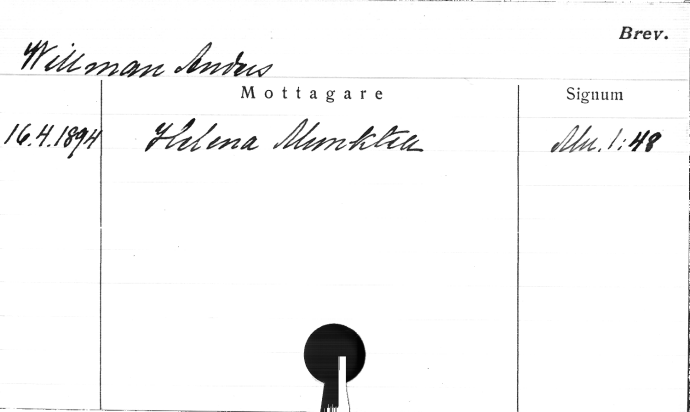 Brev.
Willman Anders
Mottagare Signum
16.4.1894 Helena Munktell Mu. 1:48